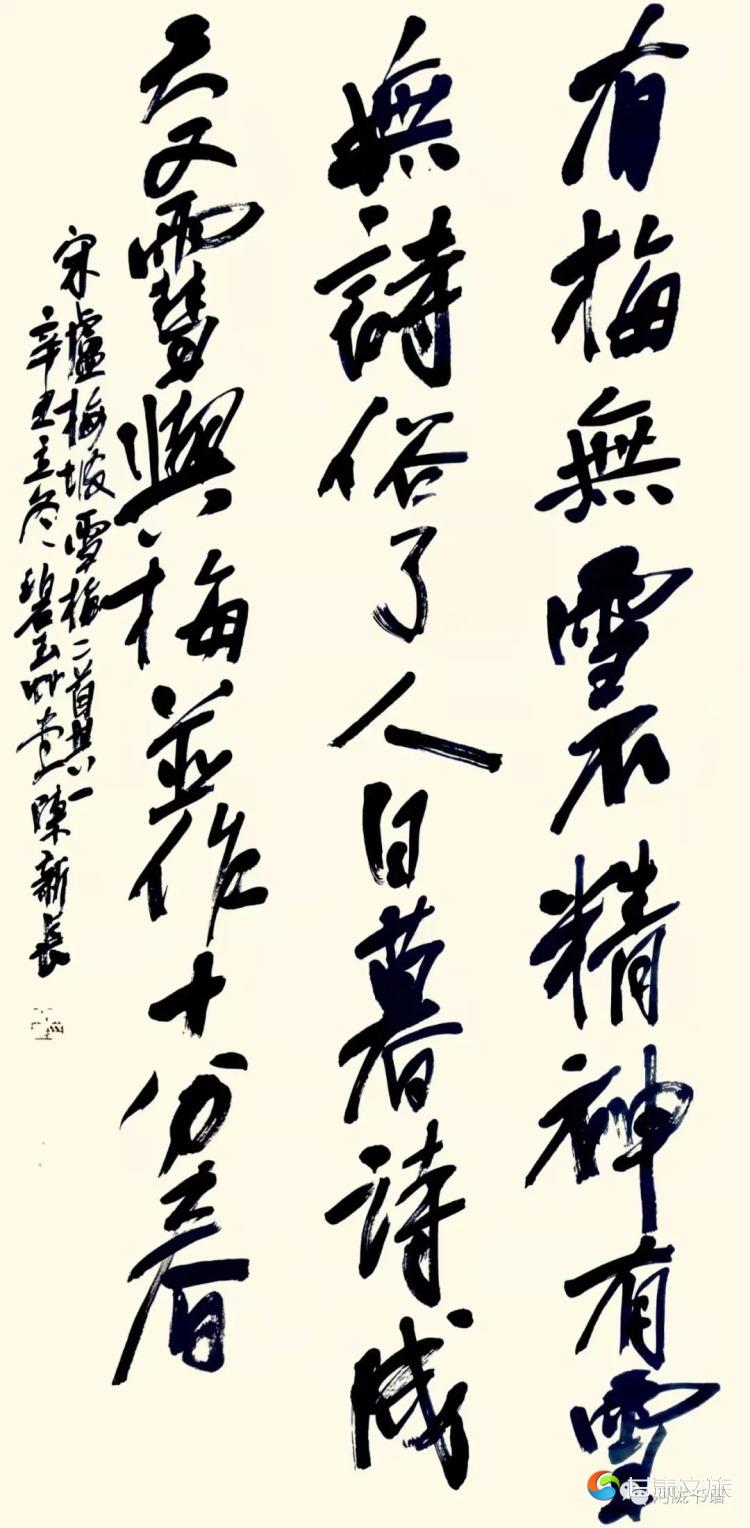 有梅無雪不精神有雪
無詩俗了人日暮詩成
天又雪與梅並作十分春
宋盧梅坡雪梅二首其一
辛丑立冬碧玉艸堂陳新長